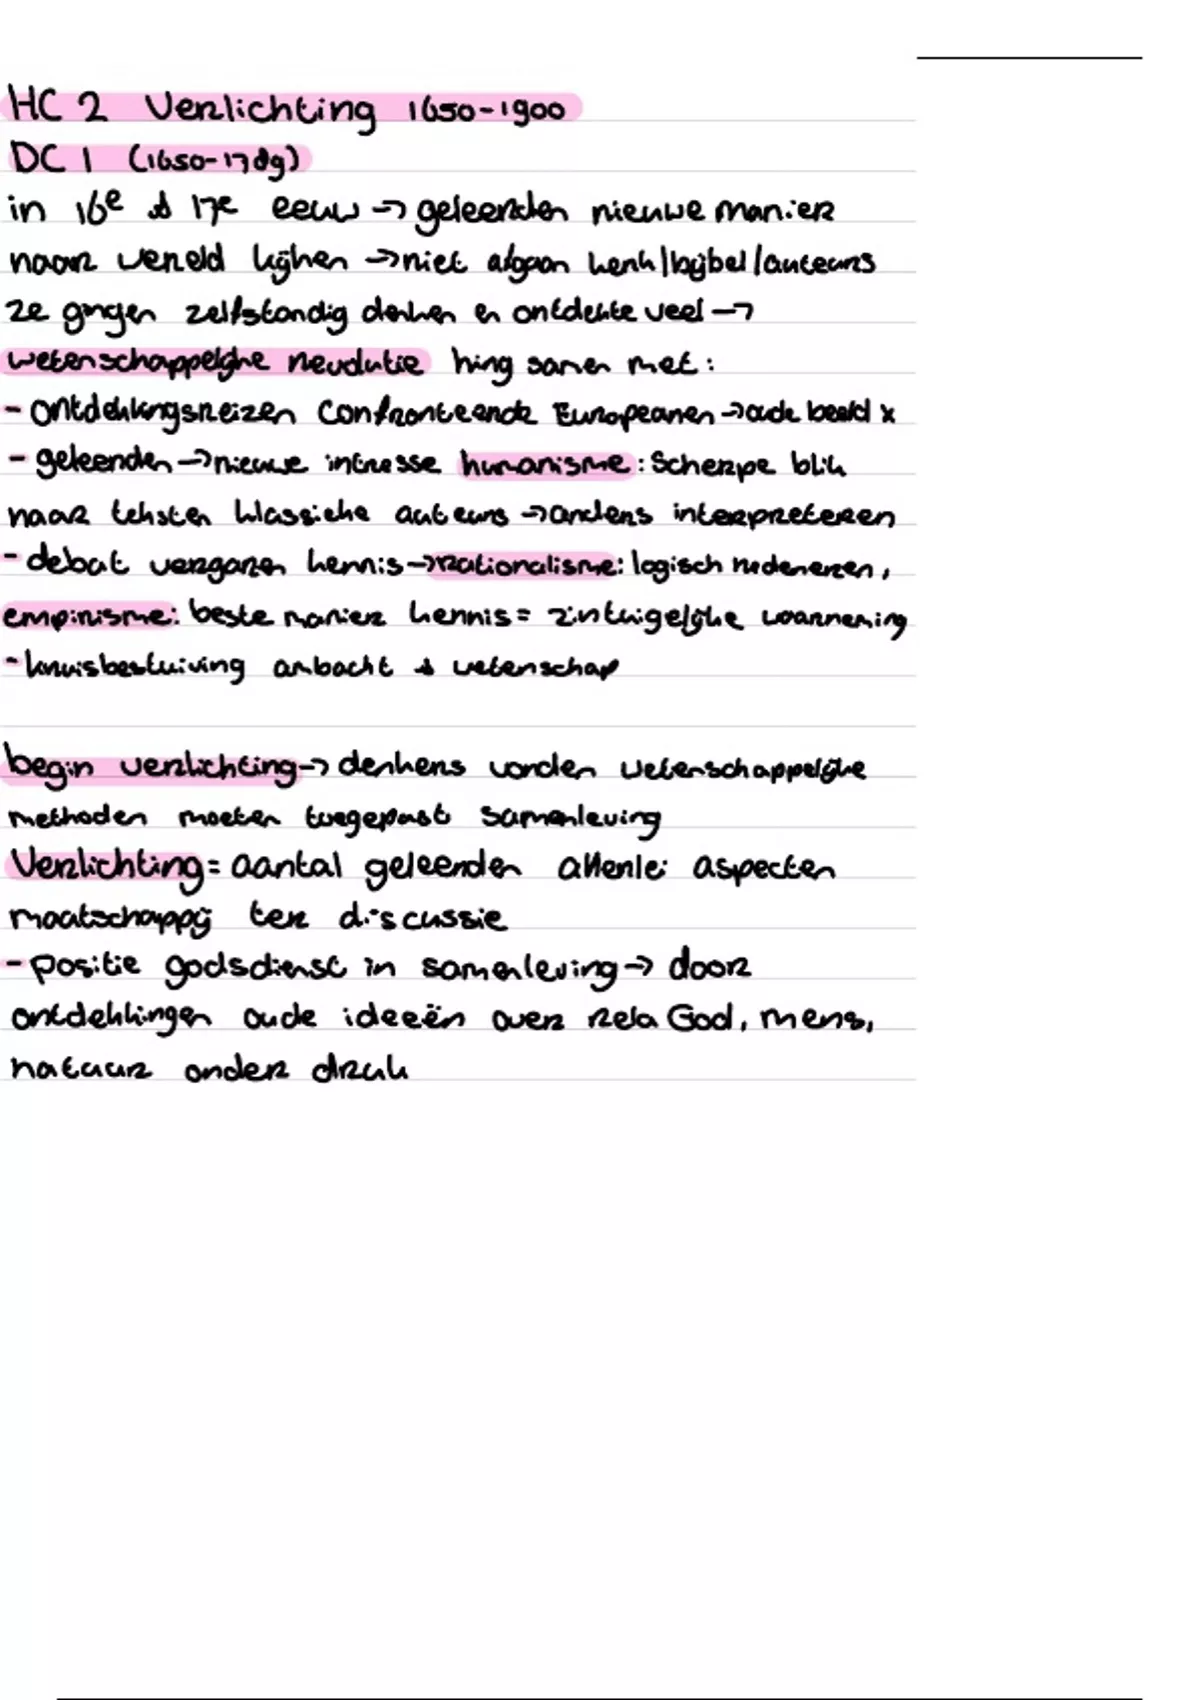 HC 2 Verlichting 1650-1900
DC 1 (1650-1789)
in 16e & 17e eeuw → geleerden nieuwe manier
naar wereld kijken → niet afgaan kerk/bijbel/auteurs
ze gingen zelfstandig denken en ontdekte veel →
wetenschappelijke revolutie hing samen met:
- ontdekkingsreizen confronteerde Europeanen → oude beeld x
- geleerden → nieuwe intresse humanisme: scherpe blik
naar teksten klassieke auteurs → anders interpreteren
- debat vergaren kennis → rationalisme: logisch redeneren,
empirisme: beste manier kennis = zintuigelijke waarneming
- kruisbestuiving ambacht & wetenschap
begin verlichting → denkers vonden wetenschappelijke
methoden moeten toegepast samenleving
Verlichting = aantal geleerden allerlei aspecten
maatschappij ter discussie
- positie godsdienst in samenleving → door
ontdekkingen oude ideeën over rela God, mens,
natuur onder druk